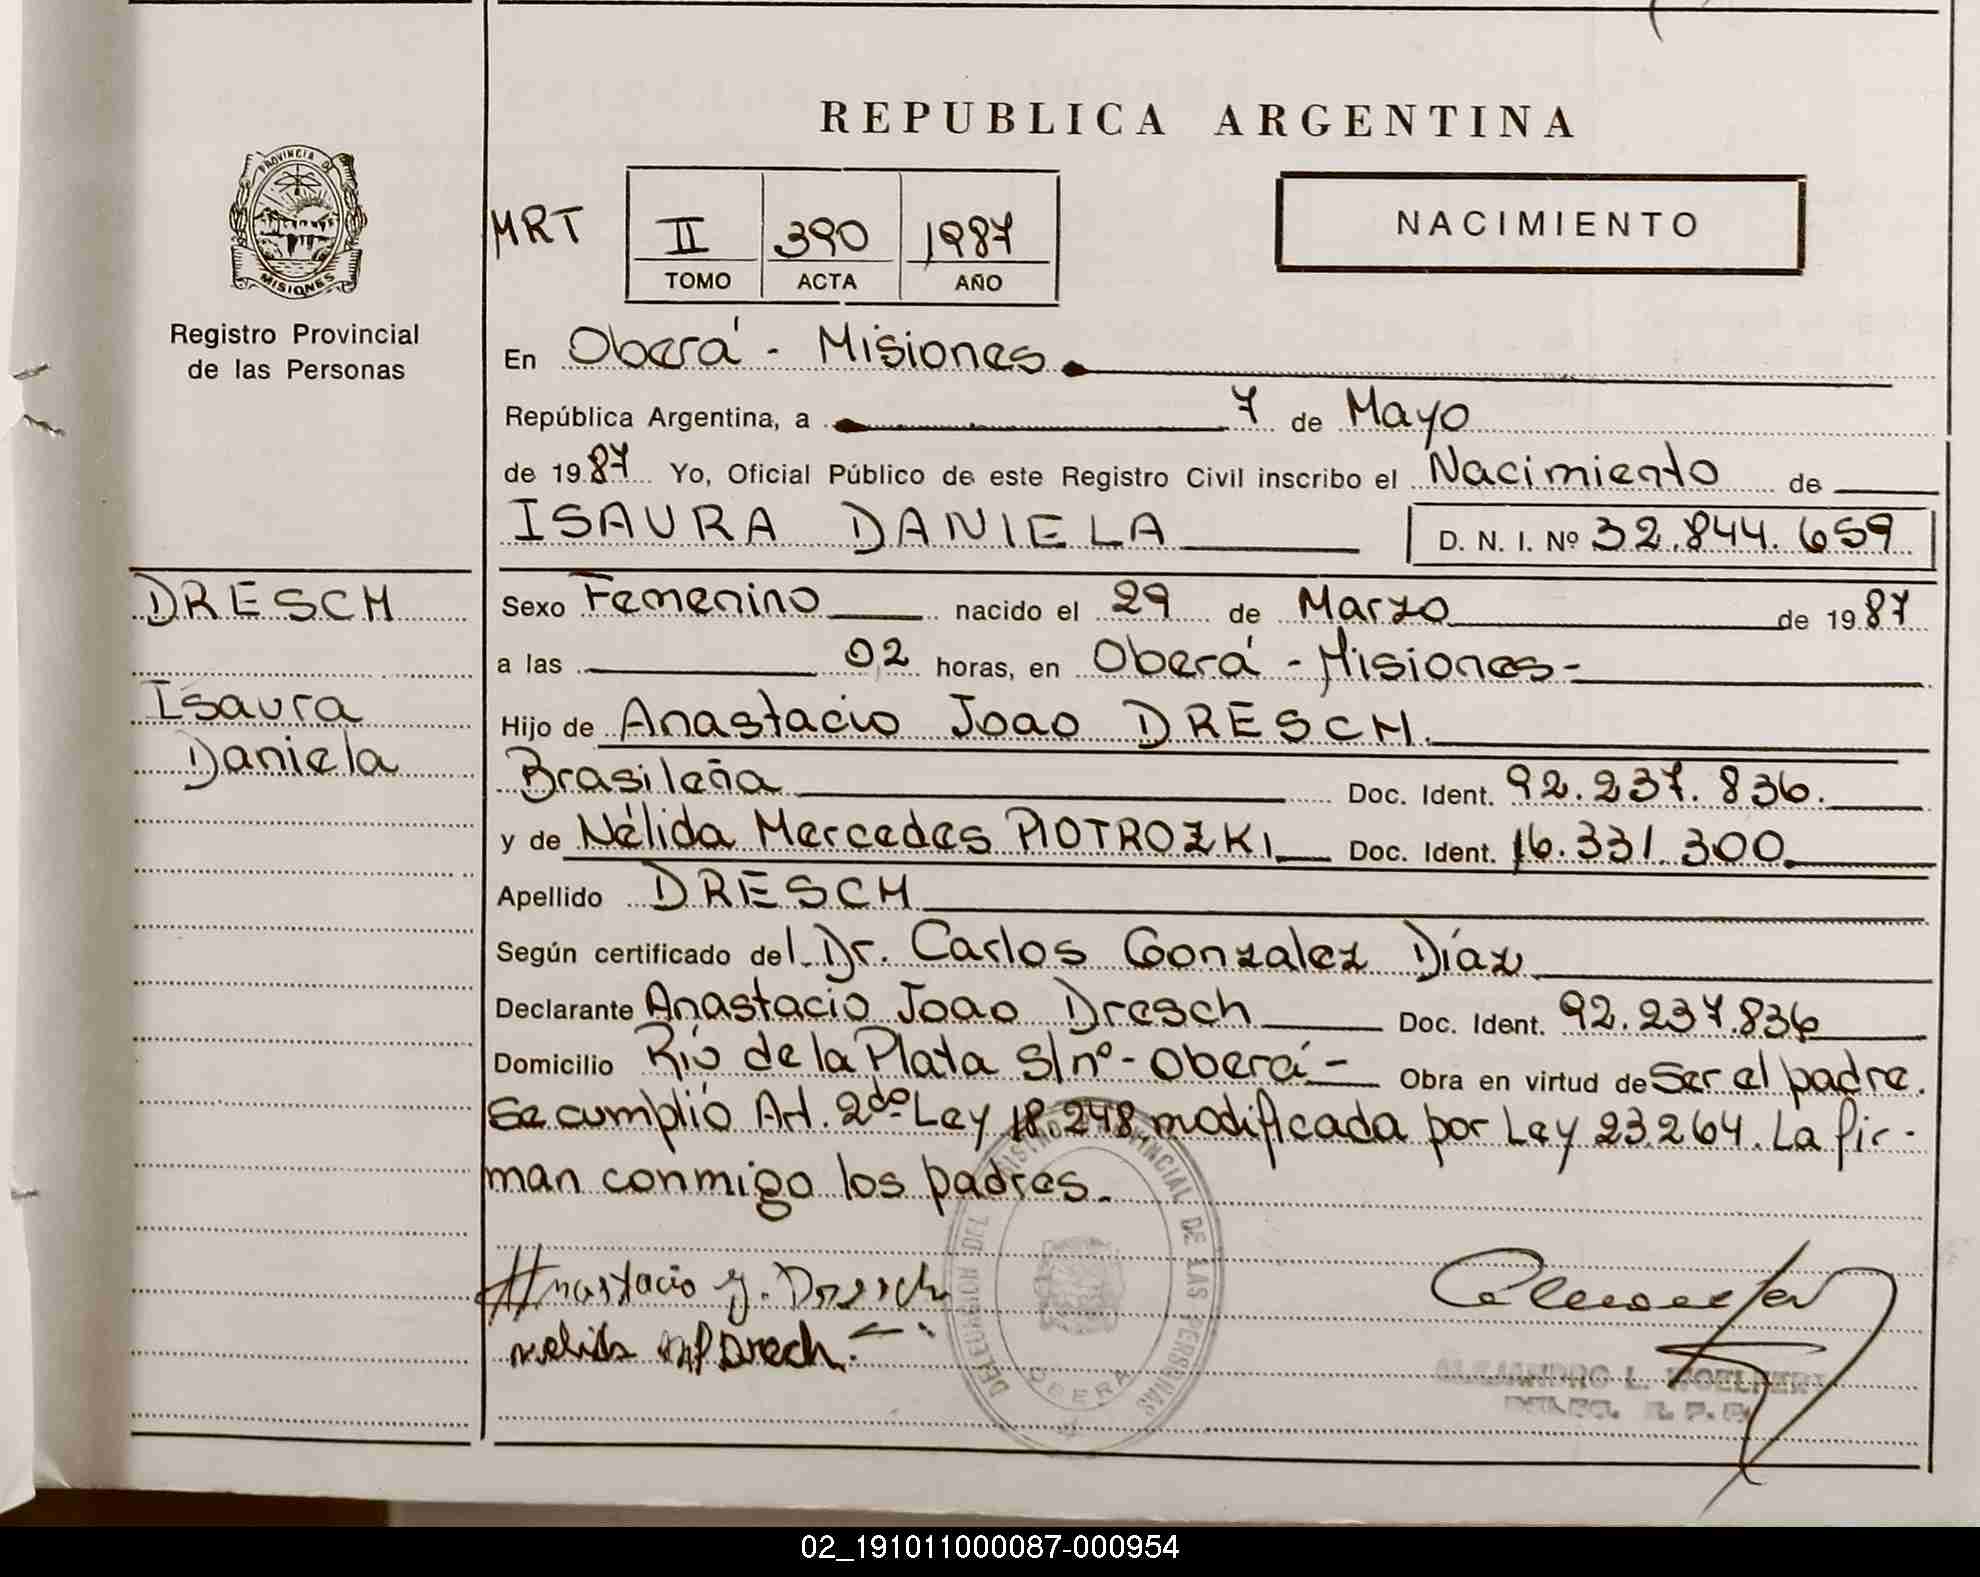 REPUBLICA ARGENTINA
PROVINCIA DE
MISIONES
Registro Provincial
de las Personas
MRT II 390 1987
TOMO ACTA AÑO
NACIMIENTO
En Oberá - Misiones
República Argentina, a 7 de Mayo
de 1987 Yo, Oficial Público de este Registro Civil inscribo el Nacimiento de
ISAURA DANIELA D. N. I. Nº 32.844.659
DRESCH
Isaura
Daniela
Sexo Femenino nacido el 29 de Marzo de 1987
a las 02 horas, en Oberá - Misiones -
Hijo de Anastacio Joao DRESCH.
Brasileña Doc. Ident. 92.237.836.
y de Nélida Mercedes PIOTROZKI Doc. Ident. 16.331.300
Apellido DRESCH
Según certificado del Dr. Carlos Gonzalez Díaz
Declarante Anastacio Joao Dresch Doc. Ident. 92.237.836
Domicilio Río de la Plata S/nº - Oberá - Obra en virtud de Ser el padre.
Se cumplió Art. 2do Ley 18.248 modificada por Ley 23.264. La fir-
man conmigo los padres.
Anastacio J. Dresch
Nelida MP Drech.
DELEGACION DEL REGISTRO PROVINCIAL DE LAS PERSONAS
OBERA
ALEJANDRO L.
02_191011000087-000954